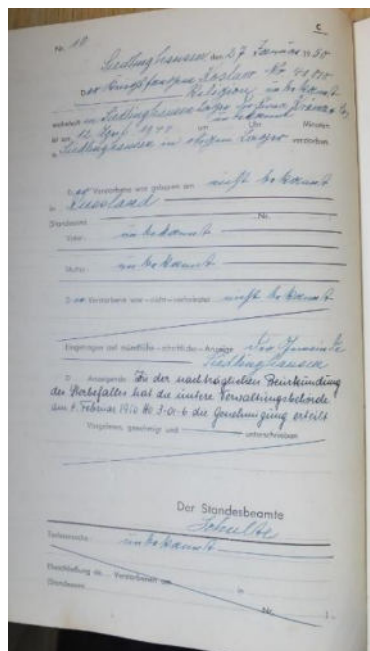 C
Nr. 10
Siedlinghausen, den 27. Januar 1950
Der Kriegsgefangene Koslow Nr.
Religion, unbekannt
wohnhaft in Siedlinghausen Lager
unbekannt
ist am 12. 1941 um Uhr Minuten
in Siedlinghausen im obigen Lager verstorben.
Der Verstorbene war geboren am nicht bekannt
in Russland
(Standesamt Nr.
Vater: unbekannt
Mutter: unbekannt
Der Verstorbene war – nicht – verheiratet nicht bekannt
Eingetragen auf mündliche – schriftliche – Anzeige der Gemeinde
Siedlinghausen
D Anzeigende Zu der nachträglichen Beurkundung
des Sterbefalles hat die untere Verwaltungsbehörde
am 4. Februar 1950 die Genehmigung erteilt
Vorgelesen, genehmigt und unterschrieben
Der Standesbeamte
Schulte
Todesursache: unbekannt
Eheschließung de Verstorbenen am in
(Standesamt Nr. ).